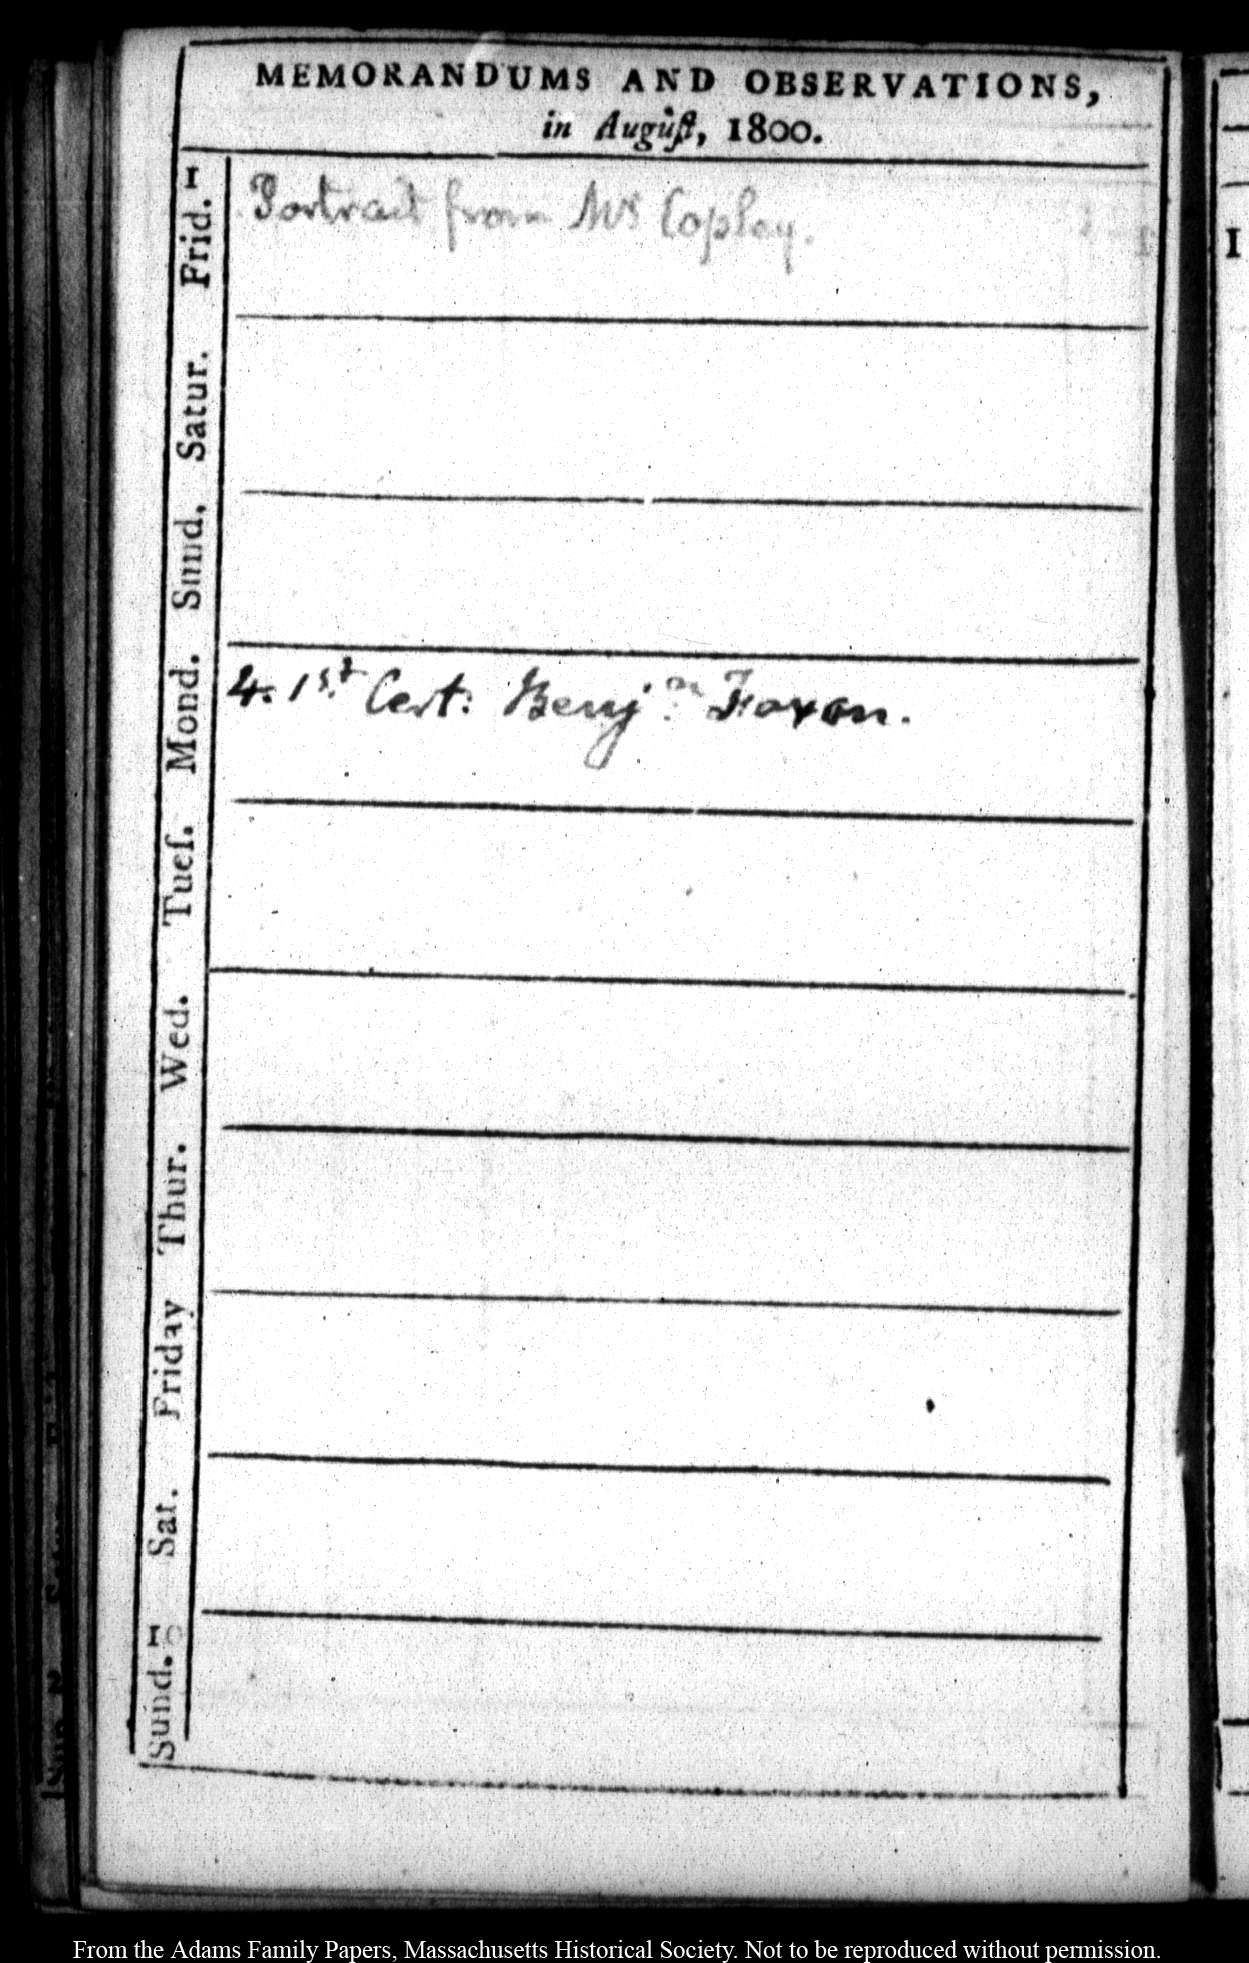 MEMORANDUMS AND OBSERVATIONS,
in Auguſt, 1800.
1
Frid.
Portrait from Mrs Copley.
Satur.
Sund.
Mond.
4. 1st. Cert: Benjn. Foxon.
Tueſ.
Wed.
Thur.
Friday
Sat.
10
Sund.
1
From the Adams Family Papers, Massachusetts Historical Society. Not to be reproduced without permission.